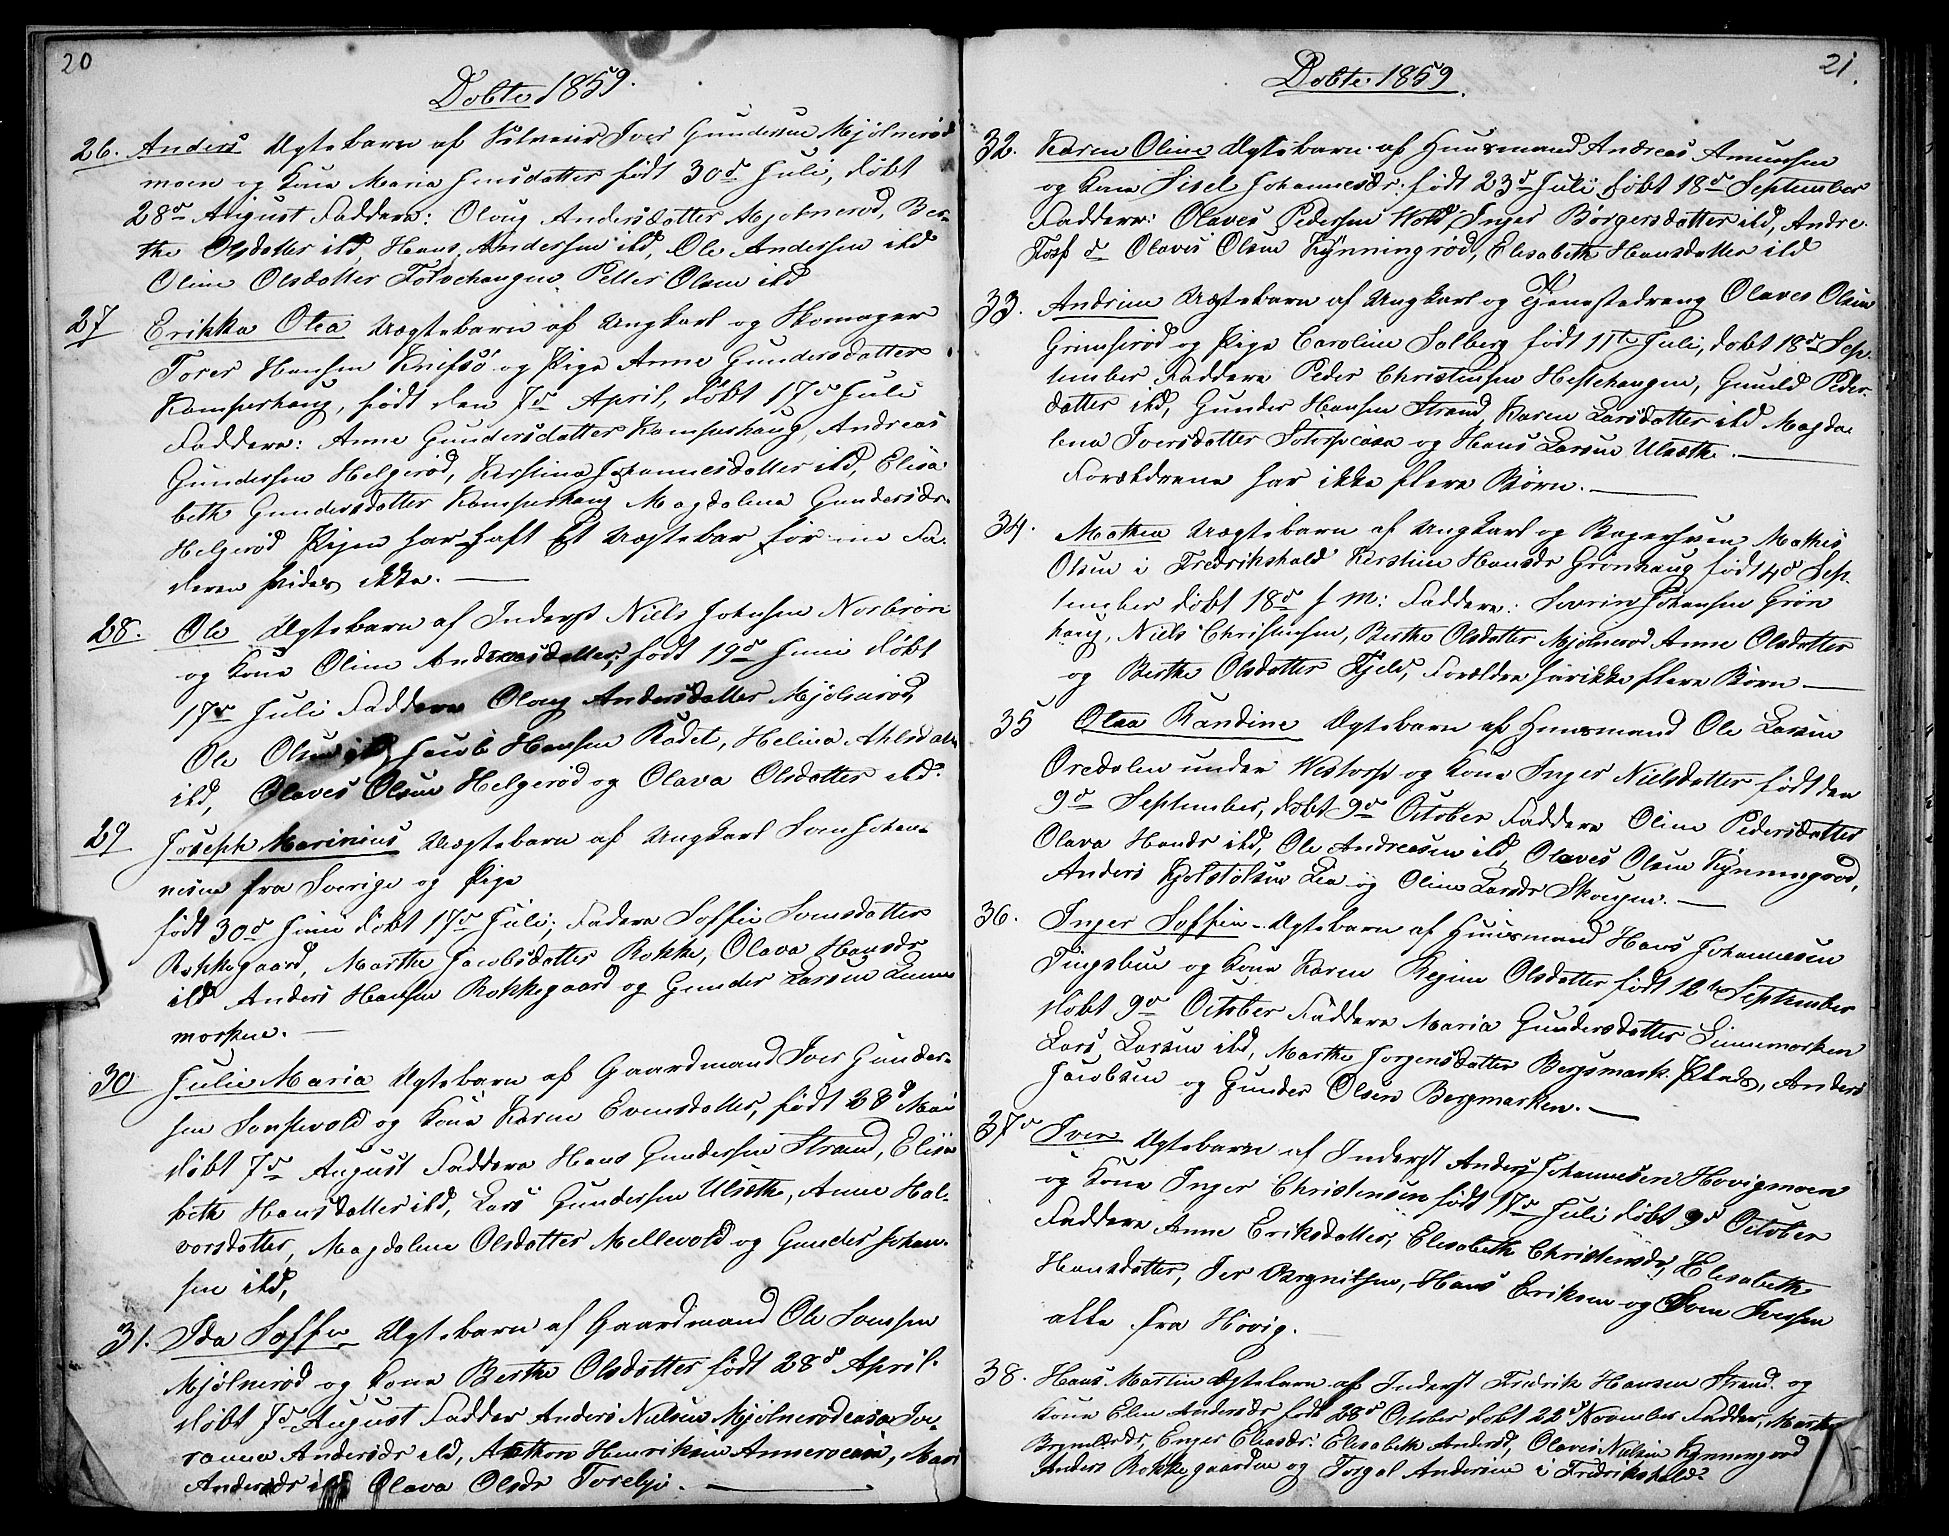 20
Døbte 1859.
26. Anders Ægtebarn af Selveier Iver Gundersen Mjølnerød
moen og Kone Maria Jensdatter født 30d Juli, døbt
28d August Faddere: Oloug Andersdatter Mjølnerød, Ber-
the Olsdatter ibd, Hans Andersen ibd, Ole Andersen ibd
Oline Olsdatter Petter Olsen ibd
27 Erikka Olea Uægtebarn af Ungkarl og Skomager
Torer Hansen Knifsø og Pige Anne Gundersdatter
Kamperhaug, født den 7d April, døbt 17d Juli
Faddere: Anne Gundersdatter Kamperhaug, Andreas
Gundersen Helgerød, Kerstine Johannesdatter ibd, Elisa
beth Gundersdatter Kamperhaug Magdalena Gundersdr.
Helgerød Pigen har haft Et Uægtebar før men Fa-
deren vides ikke.
28. Ole Ægtebarn af Inderst Niels Johnsen Norbrøn
og Kone Oline Andreasdatter, født 19d Juni døbt
17d Juli Faddere Oloug Andersdatter Mjølnerød,
Ole Olsen ibd, Jacob Hansen Rødet, Helena
ibd, Olaves Olsen Helgerød og Olava Olsdatter ibd.
29 Joseph Marinius Uægtebarn af Ungkarl Sven Johan-
nesen fra Sverige og Pige
født 30d Juni døbt 17d Juli; Fadere Soffie Svensdatter
Rokkegaard, Marthe Jacobsdatter Rokke, Olava Hansdr
ibd Anders Hansen Rokkegaard og Gunder Larsen Linne
morken.
30 Julie Maria Ægtebarn af Gaardmand Iver Gunder-
sen og Kone Karen Evensdatter, født 28d Mai
døbt 7d August Faddere Hans Gundersen Strand, Elisa
beth Hansdatter ibd, Lars Gundersen Ulsæth, Anne Hal-
vorsdatter, Magdalene Olsdatter Mellevold og Gunder Johan-
sen ibd,
31. Ida Soffie Ægtebarn af Gaardmand Ole Svensen
Mjølnerød og Kone Berthe Olsdatter født 28d April
døbt 7d August Fadder Anders Nielsen Mjølnerødeasa
Andersdr ibd, Anthon Henriksen Mari
Andersdr ibd Olava Olsdr
21.
Døbte 1859.
32. Karen Oline Ægtebarn af Huusmand Andreas Amundsen
og Kone Sisel Johannesdr. født 23d Juli føbt 18d September
Faddere: Olaves Pedersen Wold, Inger Børgersdatter ibd, Andre.
Olaves Olsen Kynningrød, Elisabeth Hansdatter ibd
33. Andrine Uægtebarn af Ungkarl og Tjenestedreng Olaves Olsen
Grimserød og Pige Caroline Solberg født 11te Juli, døbt 18d Sep-
tember Faddere Peder Christensen Hestehaugen, Gunild Peder-
datter ibd, Gunder Hansen Strand, Karen Larsdatter ibd Magda-
lena Iversdatter og Hans Larsen Ulsæth.
Forældrene har ikke flere Børn.
34. Mathea Uægtebarn af Ungkarl og Bagersven Mathis
Olsen i Fredrikshald Kerstine Hansdr Grønhaug født 4d Sep-
tember døbt 18d s M: Faddere: Severin Johansen Grøn
haug, Niels Christensen, Berthe Olsdatter Mjølnerød Anne Olsdatter
og Berthe Olsdatter Fjeld, Forældre har ikke flere Børn
35 Olea Randine Ægtebarn af Huusmand Ole Larsen
Oredalen under Westorp og Kone Inger Nielsdatter født den
9d September, døbt 9d October Faddere Oline Pedersdatter
Olava Hansdr ibd, Ole Andreasen ibd, Olaves Olsen Kynningrød,
Anders Kjølstølsen Lea og Oline Larsdr Skougen.
36. Inger Soffie Ægtebarn af Huusmand Hans Johannesen
Tingsbue og Kone Karen Regine Olsdatter født 12te September
døbt 9d October Faddere Maria Gundersdatter Linnemorken
Lars Larsen ibd, Marthe Jorgensdatter Bergmark. Plads, Anders
Jacobsen og Gunder Olsen Bergmarken.
37 Iver Ægtebarn af Inderst Anders Johannesen Hovigmoen
og Kone Inger Christensen født 17d Juli døbt 9d October
Faddere Anne Eriksdatter, Elisabeth Christensdr, Elisabeth
Hansdatter, Hans Eriksen og Sven Iversen
alle fra Høvig.
38. Hans Martin Ægtebarn af Inderst Fredrik Hansen Strand og
Kone Elen Andersdr født 28d October døbt 22d November Fadder, Marthe
Brynildsdr, Enger Eliasdr. Elisabeth Andersd, Olaves Nielsen Kynningrød
Anders Rokkegaarden og Torgal Andersen i Fredrikshald